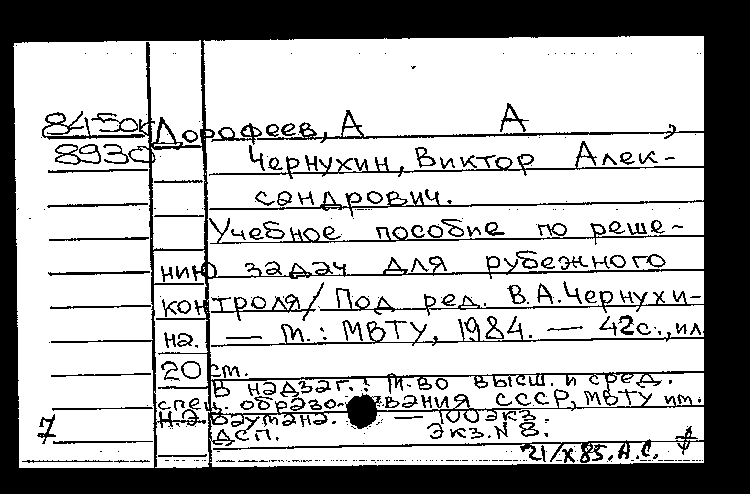 84-50к Дорофеев, А А ,
8930 Чернухин, Виктор Алек-
сандрович.
Учебное пособие по реше-
нию задач для рубежного
контроля/ Под ред. В.А.Чернухи-
на. — М.: МВТУ, 1984. — 42с., ил.
20 см.
В надзаг.: М-во высш. и сред.
спец. образования СССР, МВТУ им.
Н.Э.Баумана. — 100 экз.
ДСП. Экз.N 8.
7
21/X 85. А.С.